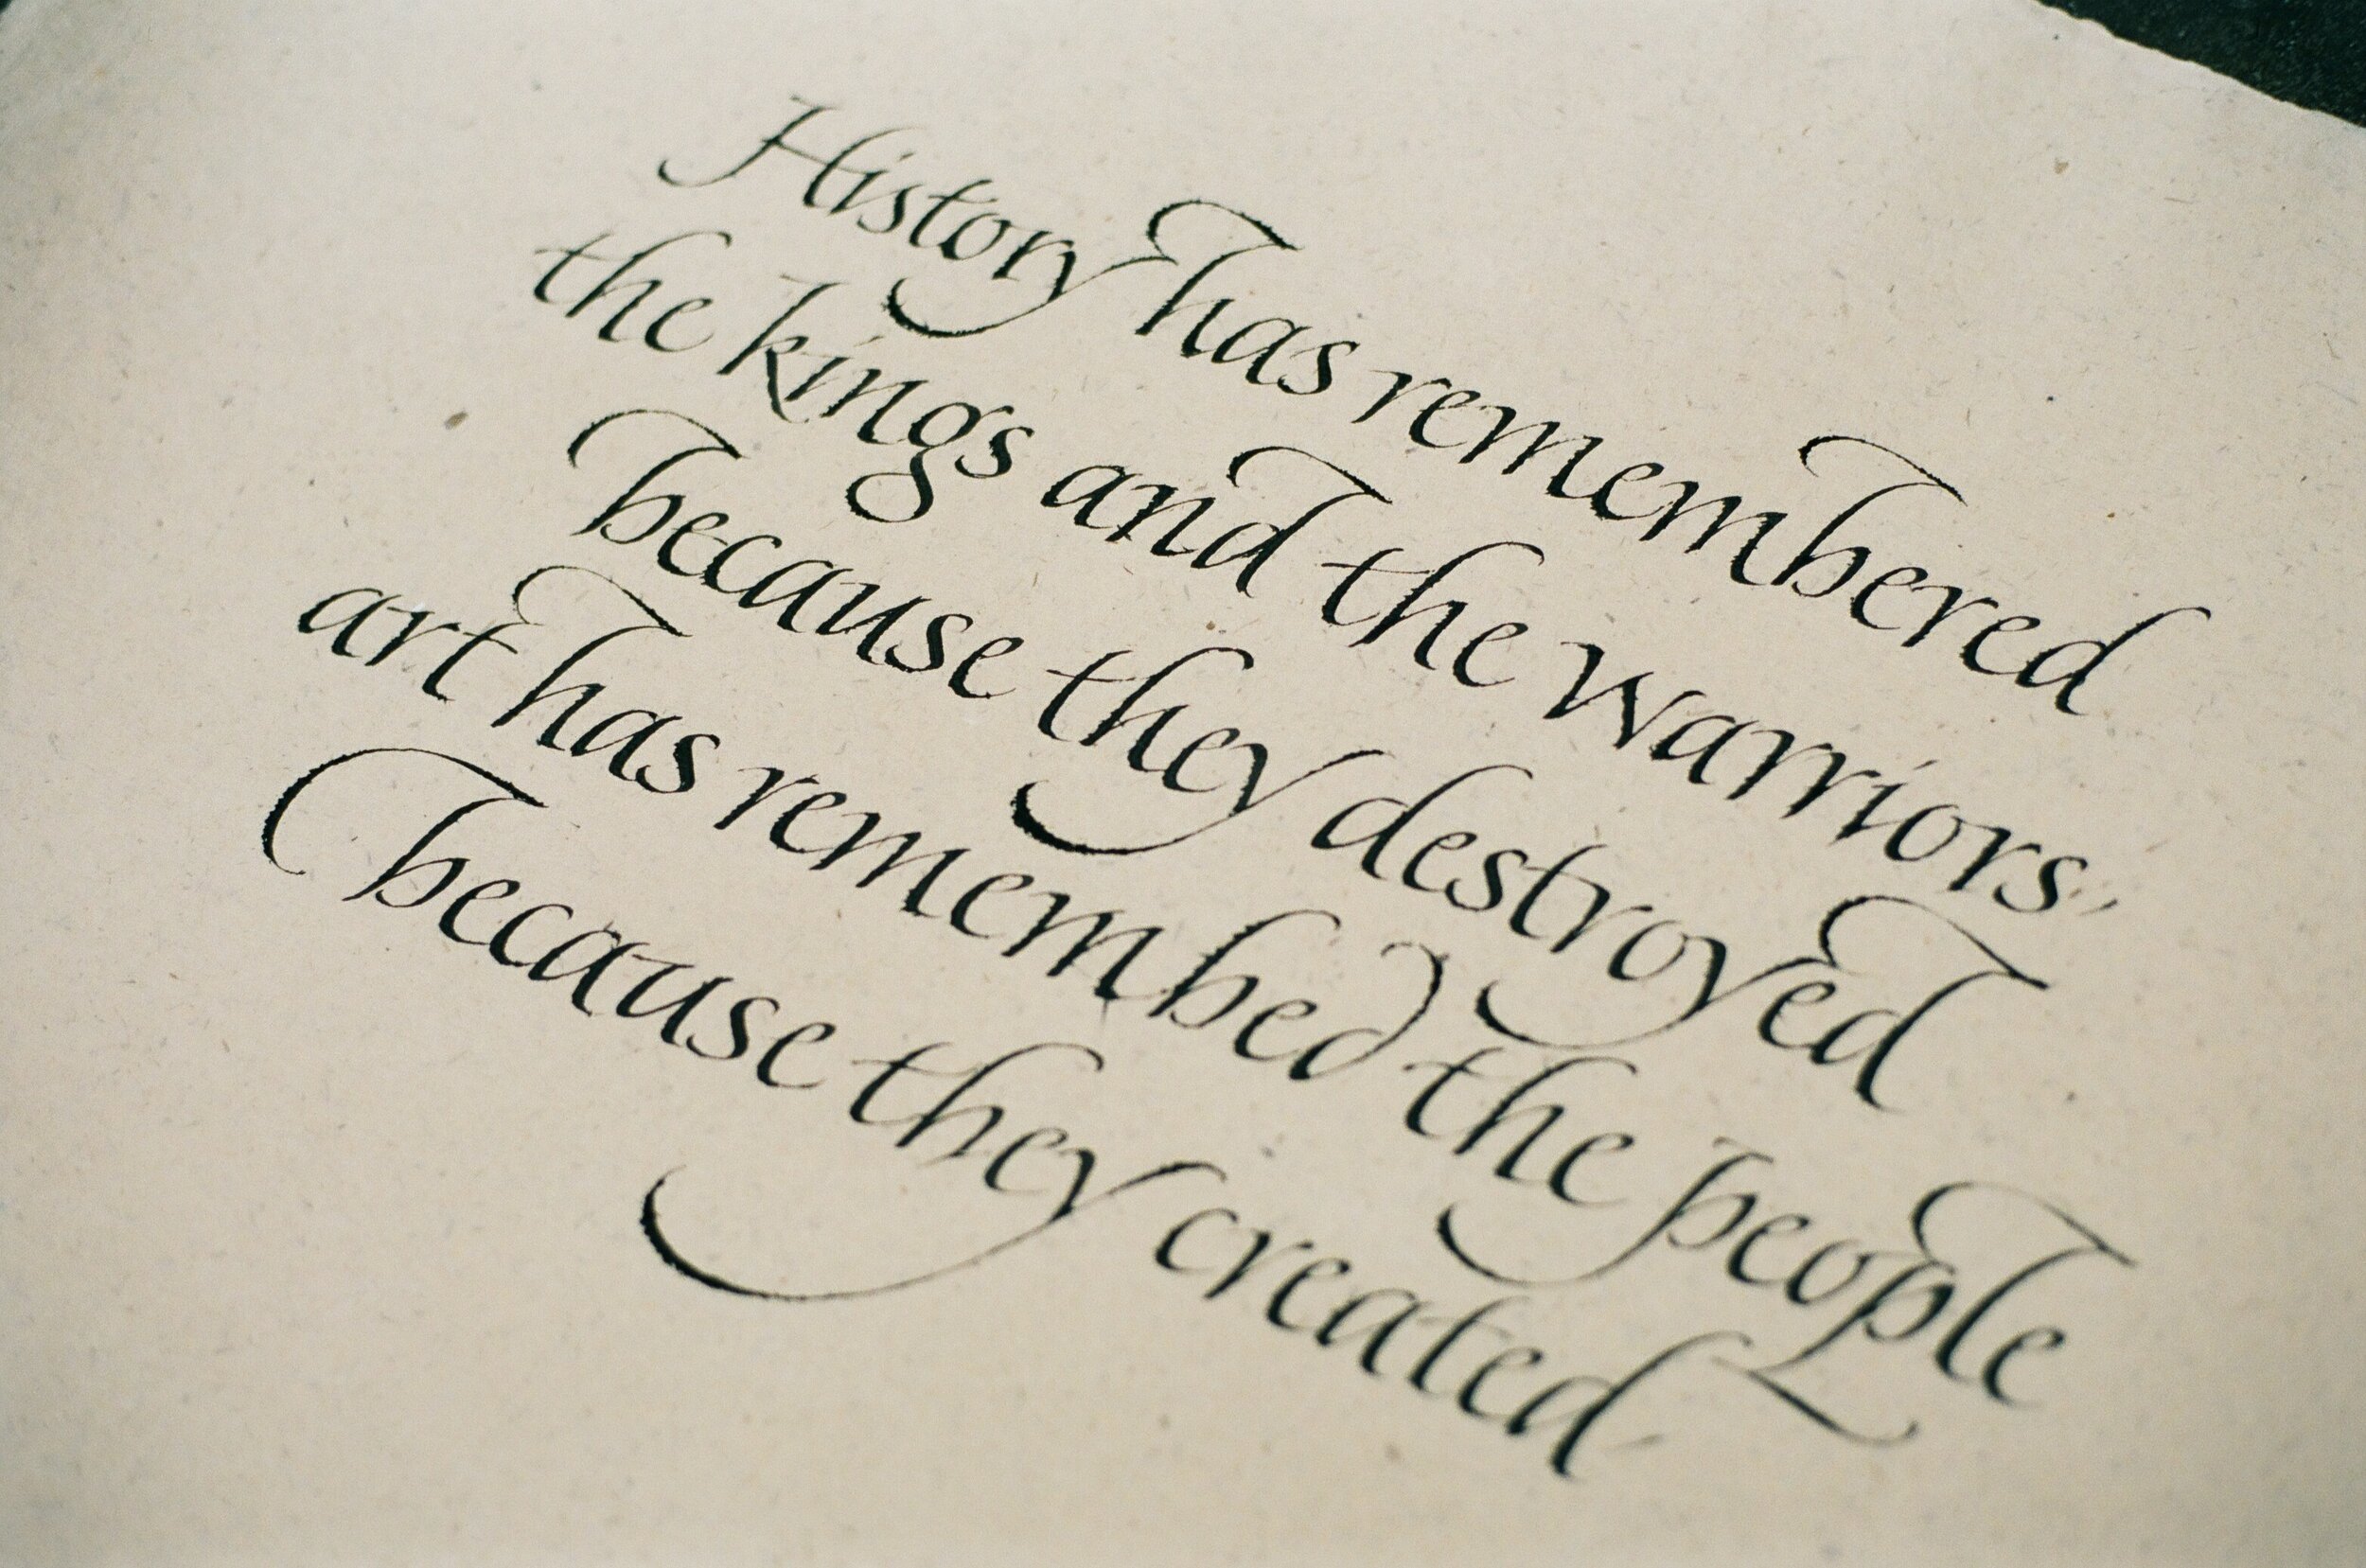 History has remembered
the kings and the warriors,
because they destroyed
art has remembed the people
because they created.